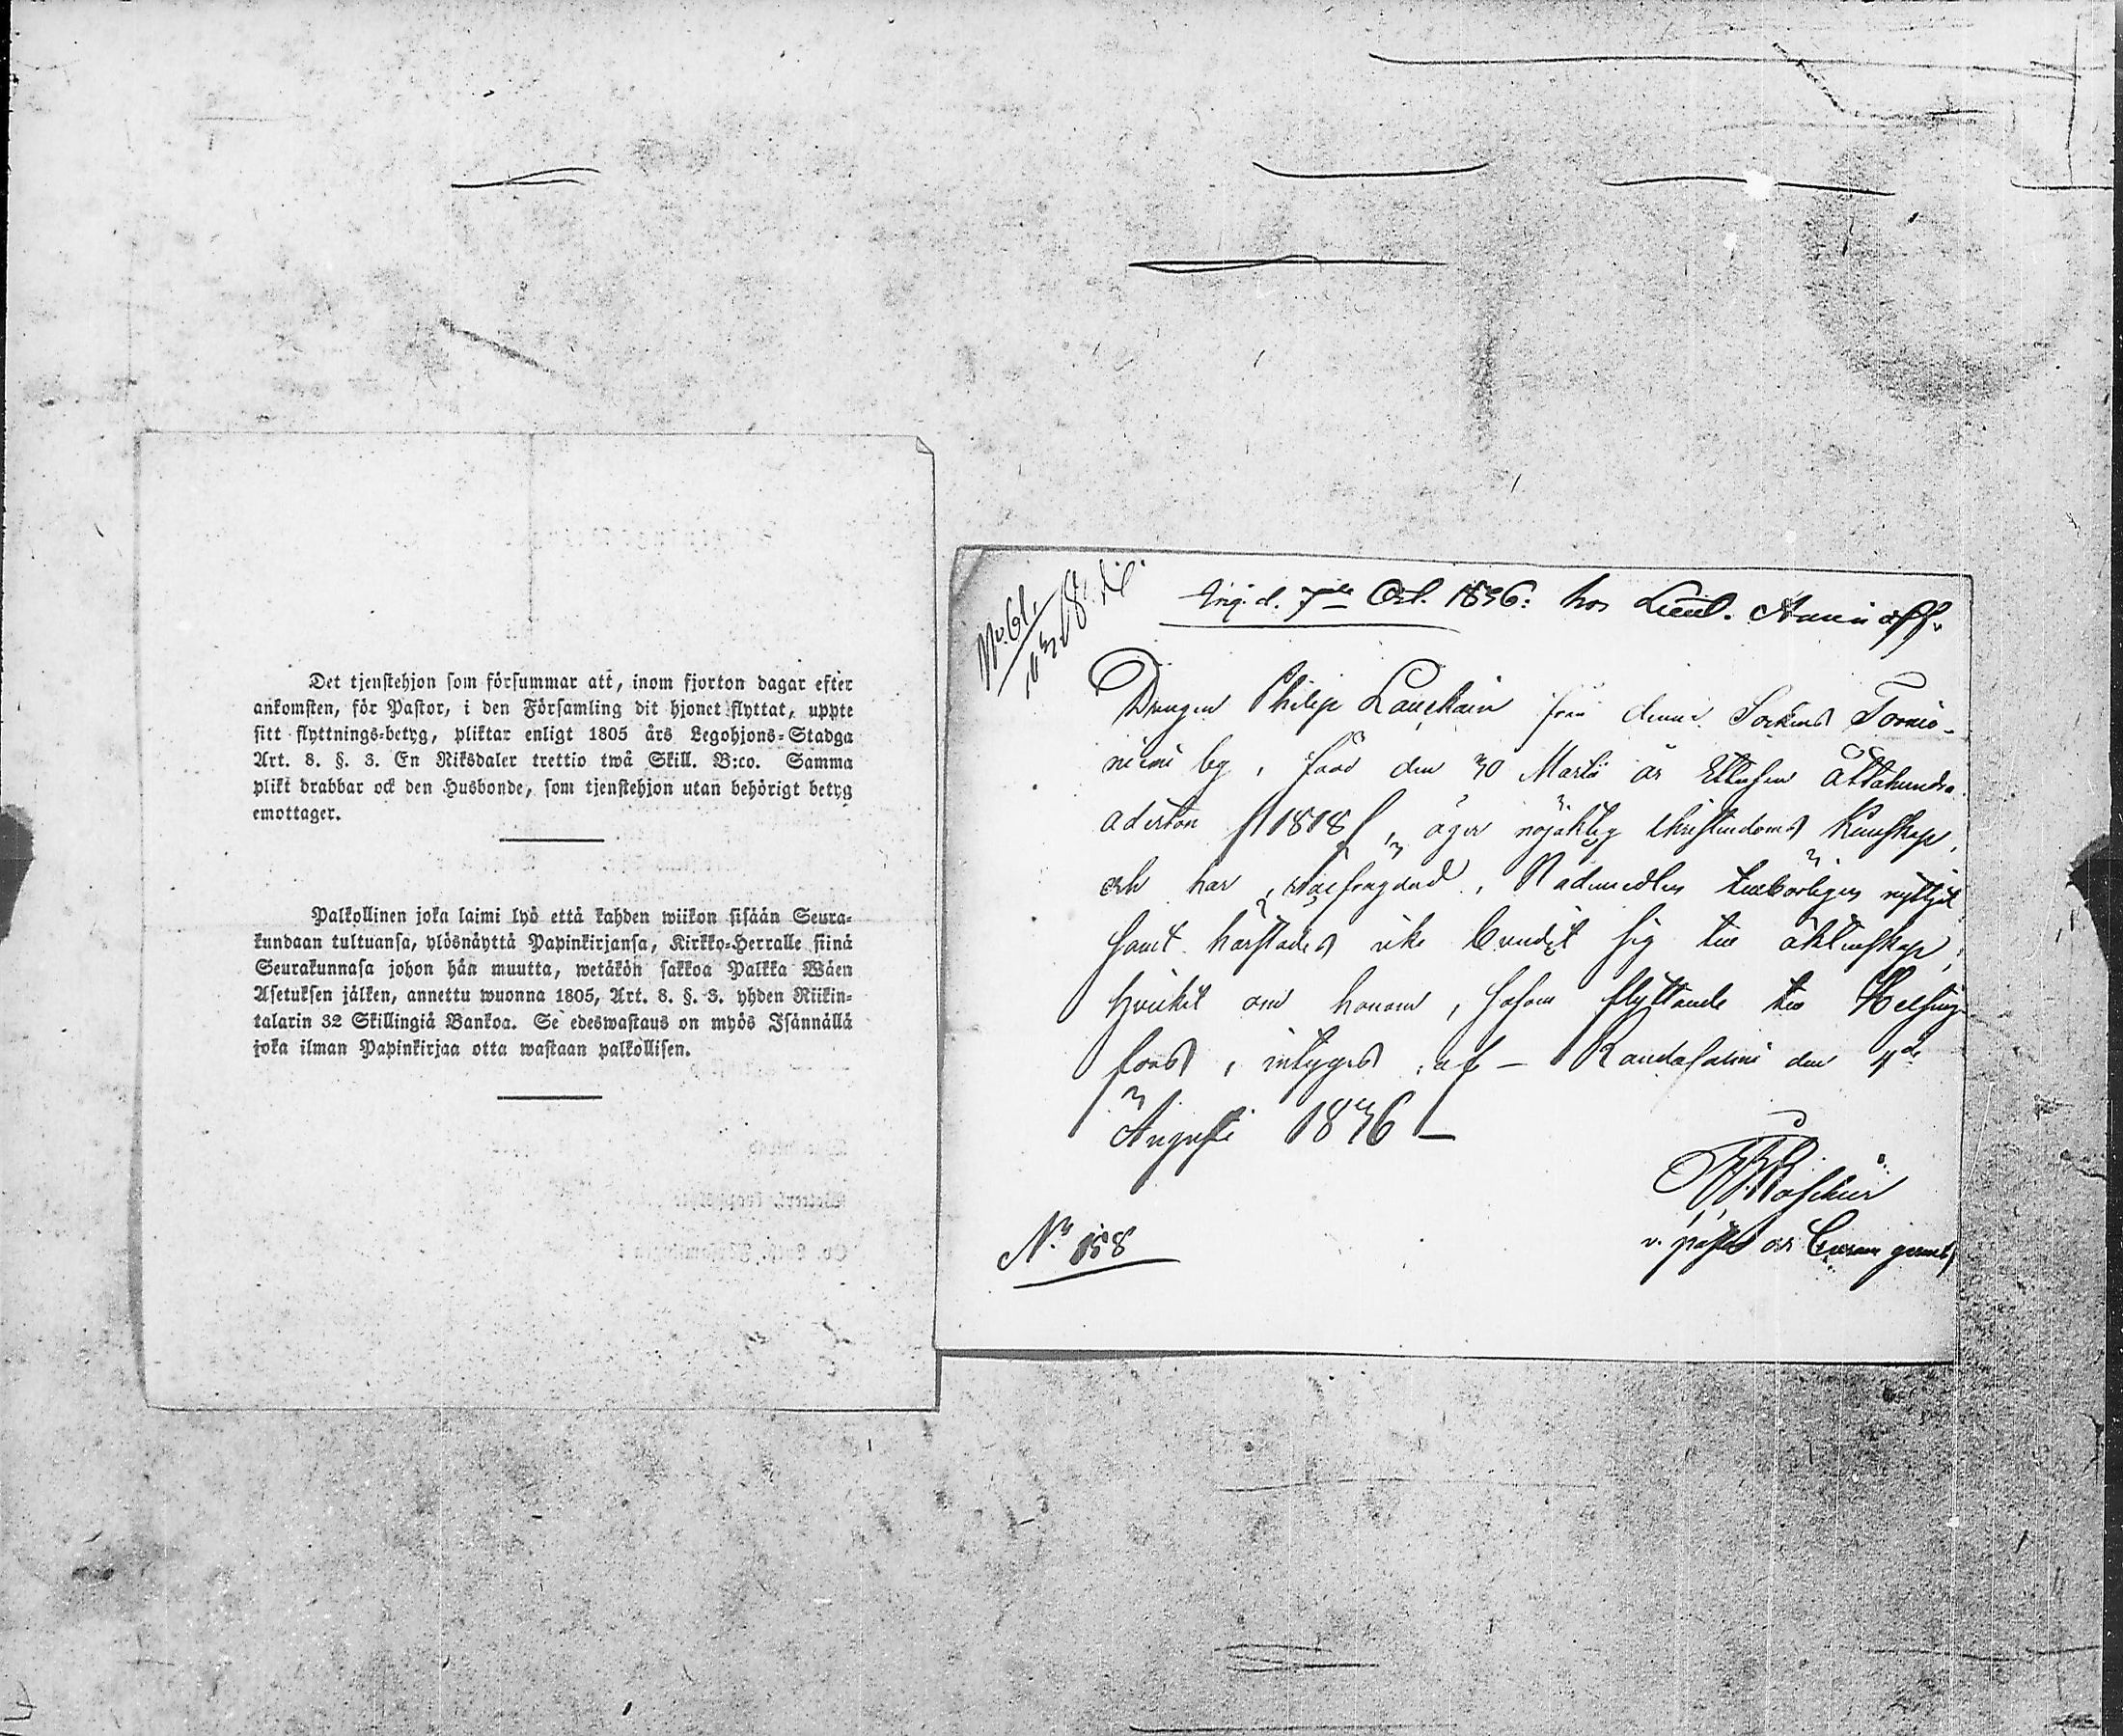 Det tjenstehjon som försummar att, inom fjorton dagar efter
ankomsten, för Pastor, i den Församling dit hjonet flyttat, uppte
sitt flyttnings-betyg, pliktar enligt 1805 års Legohjons-Stadga
Art. 8. §. 3. En Riksdaler trettio twå Skill. B:co. Samma
plikt drabbar ock den Husbonde, som tjenstehjon utan behörigt betyg
emottager.
Palkollinen joka laimi lyö että kahden wiikon sisään Seura-
kundaan tultuansa, ylösnäyttä Papinkirjansa, Kirkko-Herralle siinä
Seurakunnasa johon hän muutta, wetäkön sakkoa Palkka Wäen
Asetuksen jälken, annettu wuonna 1805, Art. 8. §. 3. yhden Riikin-
talarin 32 Skillingiä Bankoa. Se edeswastaus on myös Isännällä
joka ilman Papinkirjaa otta wastaan palkollisen.
No. 61.
d. 7de Oct. 1836: hos Lieut.
Drengen Philip Lauckain från denne Sockens Tornio-
niemi by, född den 30 Martii år Ettusen Åttahundra
aderton /:1818:/, äger nöjaktig Christendoms Kunskap,
och har, wälfrägdad, Nådemedlen tillbörligen nyttjat,
samt härstädes icke bundit sig till äktenskap;
hvilket om honom, såsom flyttande till Helsing-
fors, intygas, af — Randasalmi den 4de
Augusti 1836 —
v. pastor
No 158